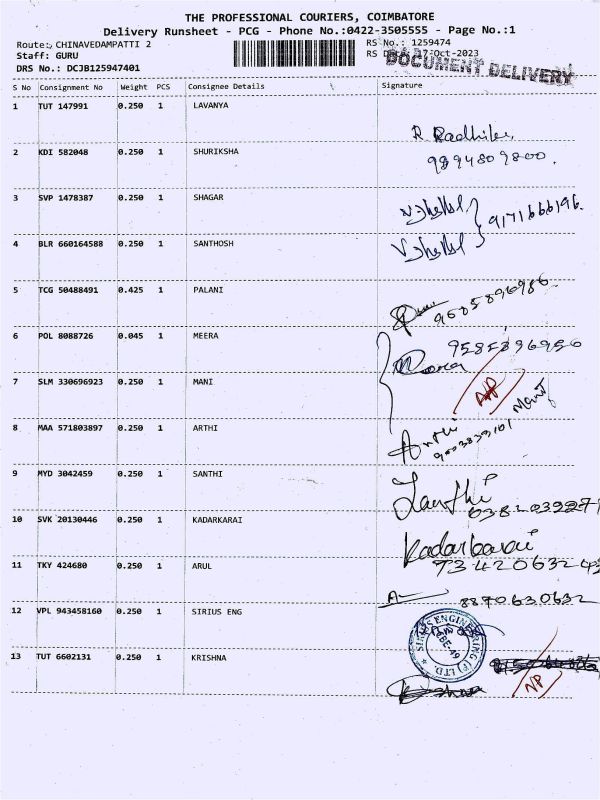 THE PROFESSIONAL COURIERS, COIMBATORE
Delivery Runsheet - PCG - Phone No.:0422-3505555 - Page No.:1
Route: CHINAVEDAMPATTI 2
RS No.: 1259474
Staff: GURU
RS 17-Oct-2023
DOCUMENT DELIVERY
DRS No.: DCJB125947401
S No Consignment No Weight PCS Consignee Details Signature
1 TUT 147991 0.250 1 LAVANYA
R Radhika
9894809800.
2 KDI 582048 0.250 1 SHURIKSHA
3 SVP 1478387 0.250 1 SHAGAR
9171666196.
4 BLR 660164588 0.250 1 SANTHOSH
5 TCG 50488491 0.425 1 PALANI
9585896986.
6 POL 8088726 0.045 1 MEERA
9585896956
7 SLM 330696923 0.250 1 MANI
Mani
8 MAA 571803897 0.250 1 ARTHI
Arthi
9 MYD 3042459 0.250 1 SANTHI
Santhi
10 SVK 20130446 0.250 1 KADARKARAI
Kadarkarai
11 TKY 424680 0.250 1 ARUL
8870630632
12 VPL 943458160 0.250 1 SIRIUS ENG
SIRIUS ENGINEERING (P) LTD.
CBE-49
13 TUT 6602131 0.250 1 KRISHNA
NP